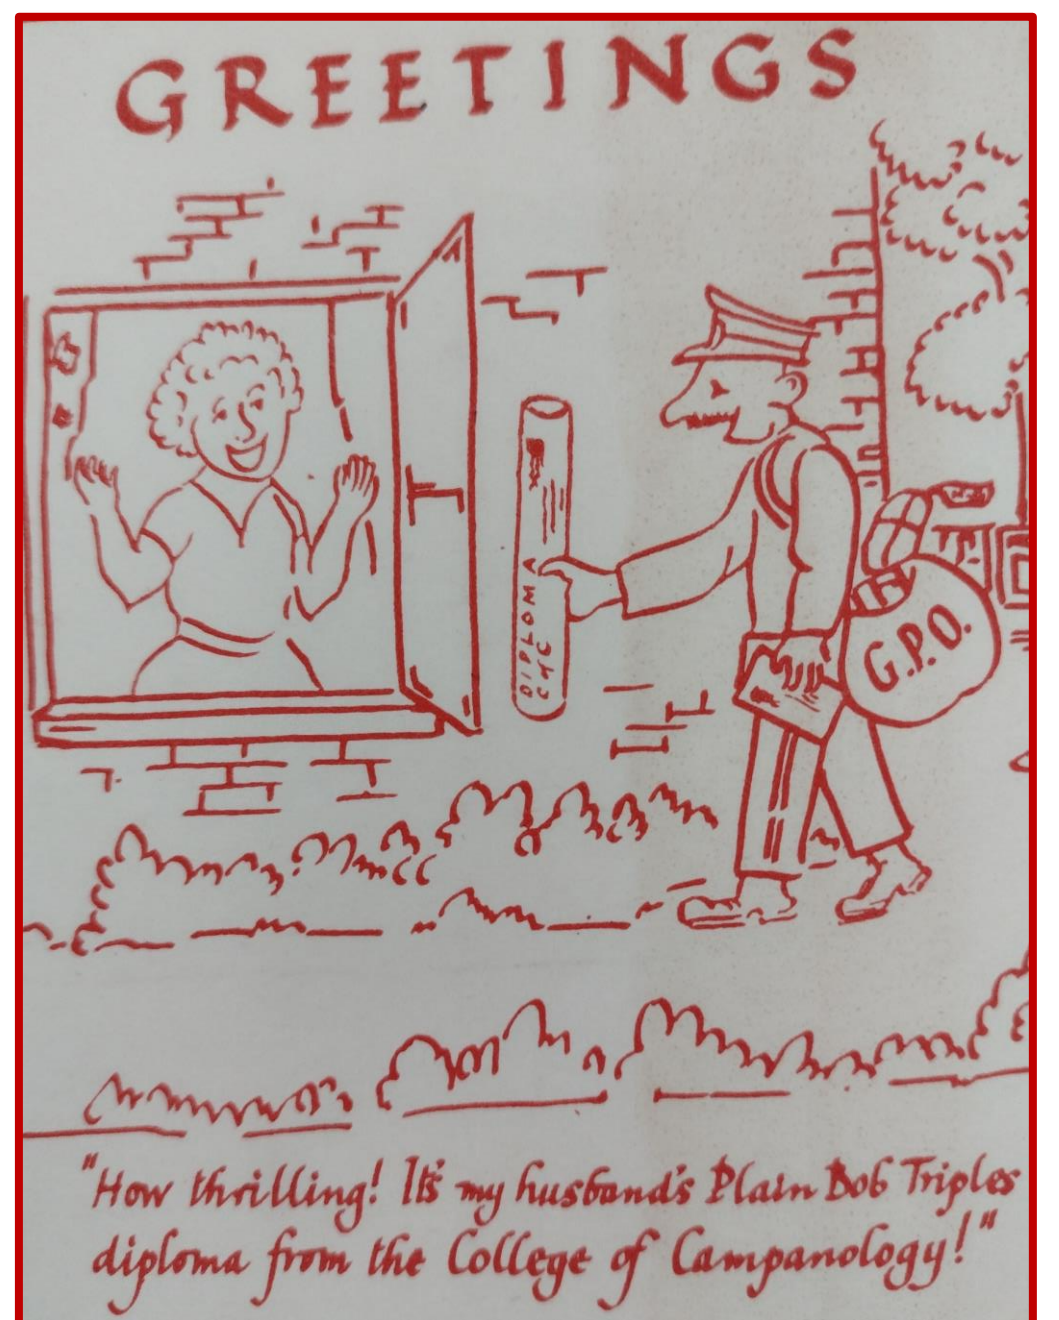 GREETINGS
DIPLOMA
G.P.O.
"How thrilling! It's my husband's Plain Bob Triples
diploma from the College of Campanology!"